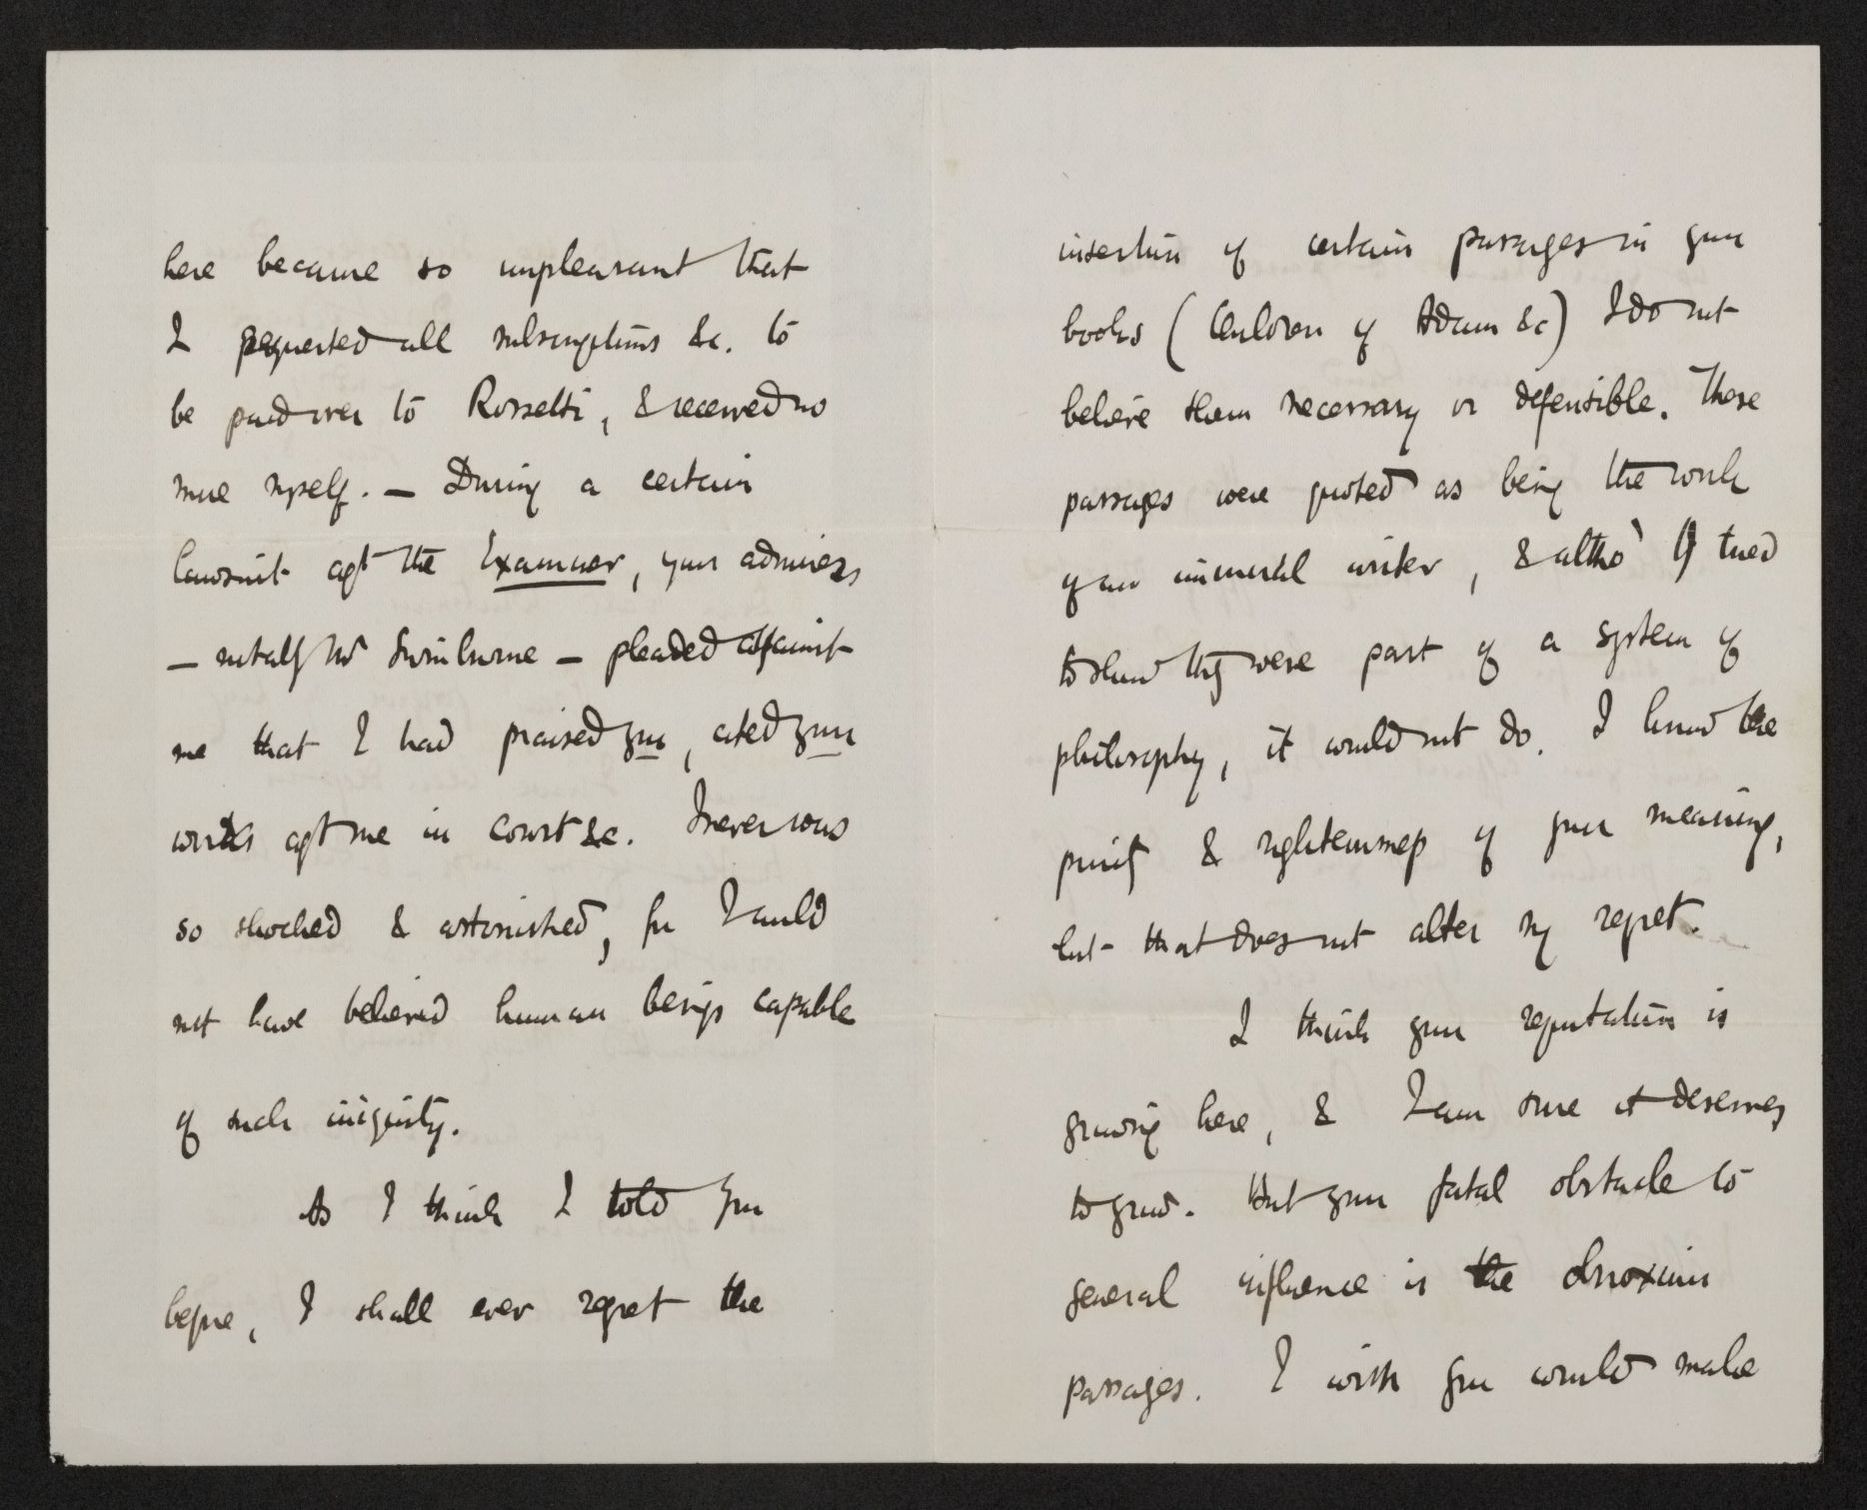 here became so unpleasant that
I requested all subscriptions &c. to
be paid over to Rossetti, & received no
more myself. — During a certain
lawsuit agt the Examiner, your admirers
— notably Mr Swinburne — pleaded against
me that I had praised you, cited your
words agt me in court &c. I never was
so shocked & astonished, for I could
not have believed human beings capable
of such iniquity.
As I think I told you
before, I shall ever regret the
insertion of certain passages in your
books (Children of Adam &c) I do not
believe them necessary or defensible. These
passages were quoted as being the work
of an immoral writer, & altho' I tried
to show they were part of a system of
philosophy, it would not do. I know the
purity & righteousness of your meaning,
but that does not alter my regret.
I think your reputation is
growing here, & I am sure it deserves
to grow. But your fatal obstacle to
general influence is the obnoxious
passages. I wish you would make